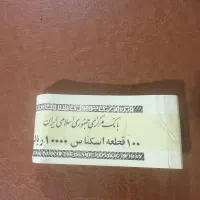 بانک مرکزی جمهوری اسلامی ایران
۱۰۰ قطعه اسکناس ۱۰۰۰۰ ریالی